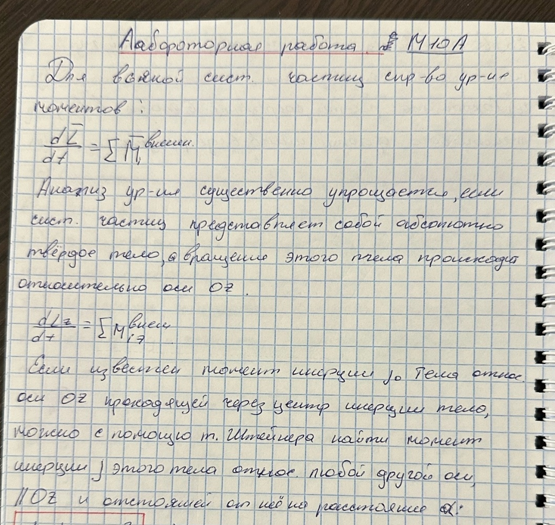 Лабороторная работа М10А
Для всякой сист. частиц спр-во ур-ие
моментов:
dL̅/dt = ∑ M̅ᵢ внешн.
Анализ ур-ия существенно упрощается, если
сист. частиц представляет собой абсолютно
твёрдое тело, а вращение этого тела происходит
относительно оси OZ.
dLz/dt = ∑ Miz внеш
Если известен момент инерции J₀ тела относ.
оси OZ проходящей через центр инерции тело,
можно с помощью т. Штейнера найти момент
инерции J этого тела относ. любой другой оси,
||OZ и отстоящей от неё на расстояние d: